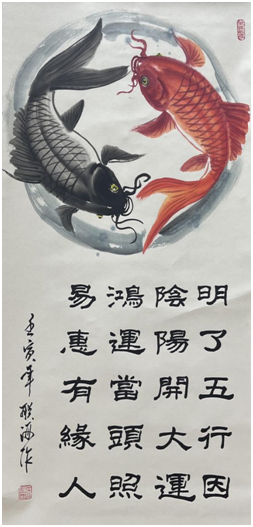 明了五行因
陰陽開大運
鴻運當頭照
易惠有緣人
壬寅年聯海作